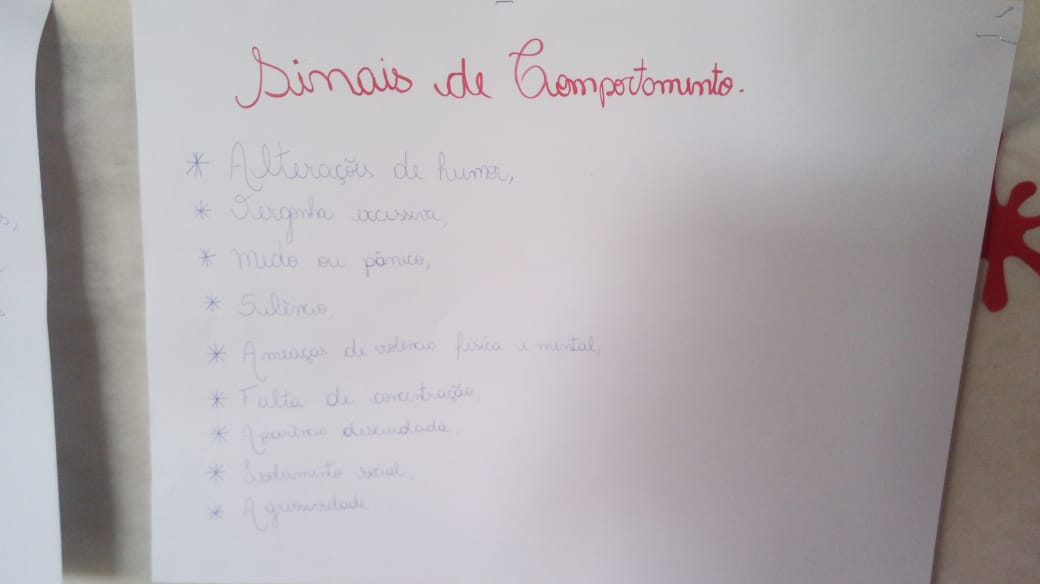 Sinais de Comportamento.
* Alterações de humor,
* Vergonha excessiva,
* Medo ou pânico,
* Silêncio,
* Ameaças de violência física e mental,
* Falta de concentração,
* Aparência descuidada.
* Isolamento social,
* Agressividade